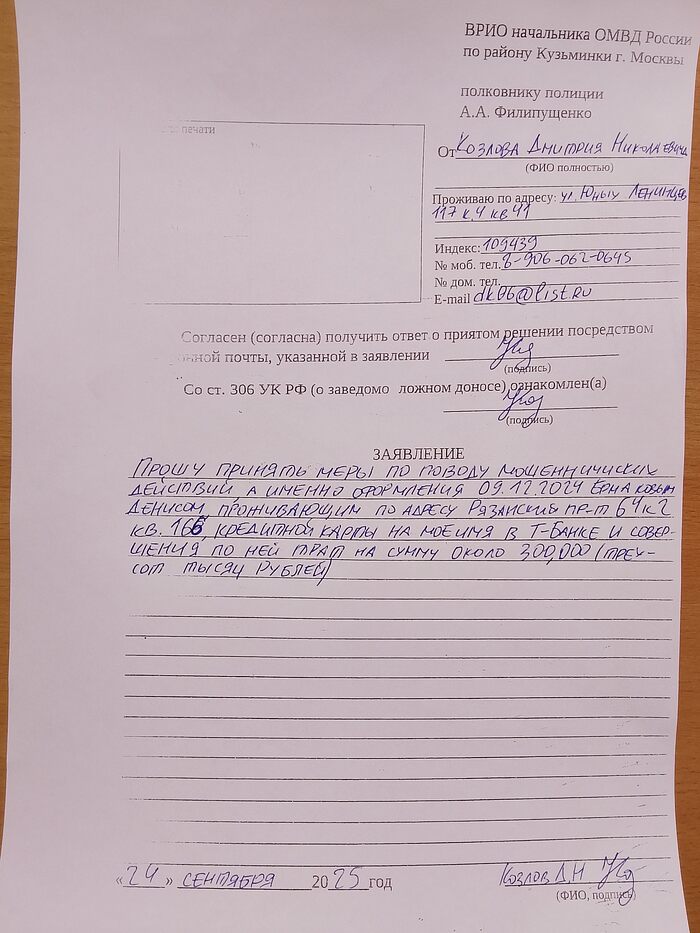 ВРИО начальника ОМВД России
по району Кузьминки г. Москвы
полковнику полиции
А.А. Филипущенко
печати
От Козлова Дмитрия Николаевича
(ФИО полностью)
Проживаю по адресу: ул. Юных Ленинцев
117 к.4 кв 41
Индекс: 109439
№ моб. тел. 8-906-062-0645
№ дом. тел.
E-mail dk06@list.ru
Согласен (согласна) получить ответ о приятом решении посредством
нной почты, указанной в заявлении
(подпись)
Со ст. 306 УК РФ (о заведомо ложном доносе) ознакомлен(а)
(подпись)
ЗАЯВЛЕНИЕ
Прошу принять меры по поводу мошенничиских
действий, а именно оформления 09.12.2024 Ермаковым
Денисом, проживающим по адресу Рязанский пр-т 64 к2
кв. 166, кредитной карты на мое имя в Т-Банке и совер-
шения по ней трат на сумму около 300,000 (трех-
сот тысяч рублей)
«24» сентября 2025 год
Козлов Д.Н
(ФИО, подпись)